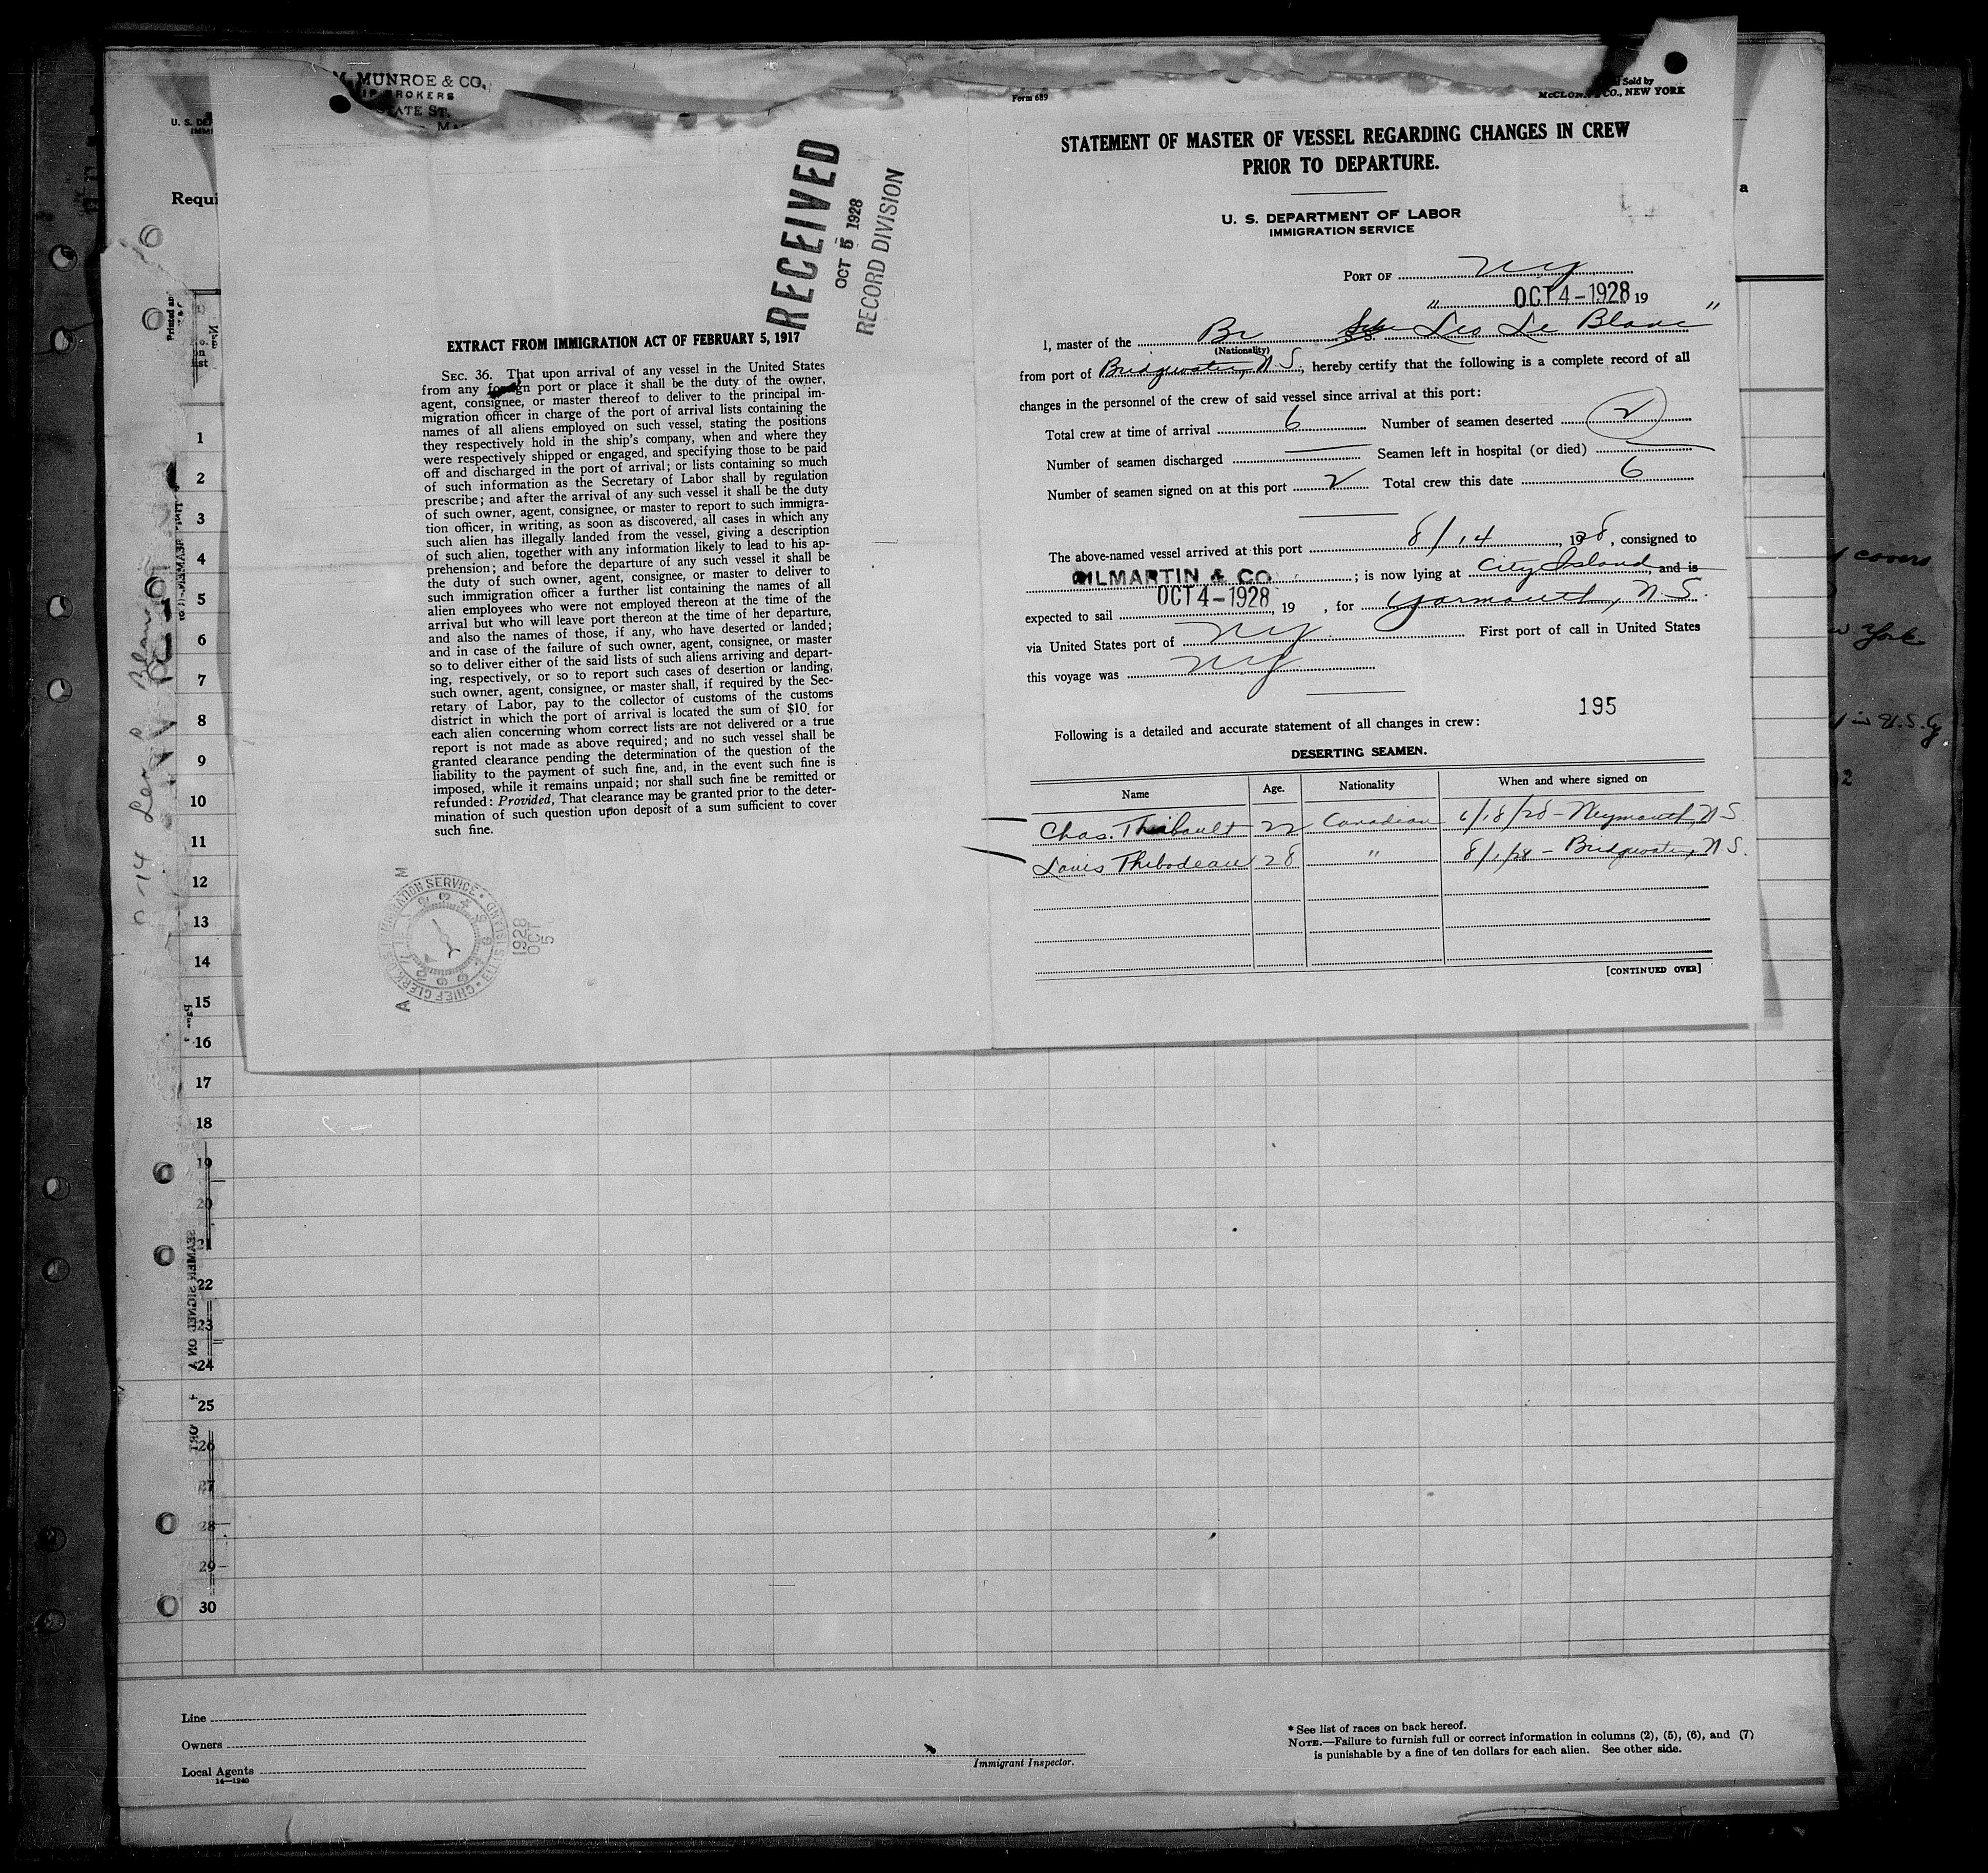 MUNROE & CO.
BROKERS
STATE ST.
Requi
RECEIVED
OCT 5 1928
RECORD DIVISION
EXTRACT FROM IMMIGRATION ACT OF FEBRUARY 5, 1917
SEC. 36. That upon arrival of any vessel in the United States
from any foreign port or place it shall be the duty of the owner,
agent, consignee, or master thereof to deliver to the principal im-
migration officer in charge of the port of arrival lists containing the
names of all aliens employed on such vessel, stating the positions
they respectively hold in the ship's company, when and where they
were respectively shipped or engaged, and specifying those to be paid
off and discharged in the port of arrival; or lists containing so much
of such information as the Secretary of Labor shall by regulation
prescribe; and after the arrival of any such vessel it shall be the duty
of such owner, agent, consignee, or master to report to such immigra-
tion officer, in writing, as soon as discovered, all cases in which any
such alien has illegally landed from the vessel, giving a description
of such alien, together with any information likely to lead to his ap-
prehension; and before the departure of any such vessel it shall be
the duty of such owner, agent, consignee, or master to deliver to
such immigration officer a further list containing the names of all
alien employees who were not employed thereon at the time of the
arrival but who will leave port thereon at the time of her departure,
and also the names of those, if any, who have deserted or landed;
and in case of the failure of such owner, agent, consignee, or master
so to deliver either of the said lists of such aliens arriving and depart-
ing, respectively, or so to report such cases of desertion or landing,
such owner, agent, consignee, or master shall, if required by the Sec-
retary of Labor, pay to the collector of customs of the customs
district in which the port of arrival is located the sum of $10 for
each alien concerning whom correct lists are not delivered or a true
report is not made as above required; and no such vessel shall be
granted clearance pending the determination of the question of the
liability to the payment of such fine, and, in the event such fine is
imposed, while it remains unpaid; nor shall such fine be remitted or
refunded: Provided, That clearance may be granted prior to the deter-
mination of such question upon deposit of a sum sufficient to cover
such fine.
1928
OCT
5
Form 689
Sold by
CO., NEW YORK
STATEMENT OF MASTER OF VESSEL REGARDING CHANGES IN CREW
PRIOR TO DEPARTURE.
U. S. DEPARTMENT OF LABOR
IMMIGRATION SERVICE
PORT OF NY
" OCT 4-1928 19
I, master of the Br Sch Leo Le Blanc "
(Nationality)
from port of Bridgewater, N.S., hereby certify that the following is a complete record of all
changes in the personnel of the crew of said vessel since arrival at this port:
Total crew at time of arrival 6 Number of seamen deserted 2
Number of seamen discharged — Seamen left in hospital (or died) —
Number of seamen signed on at this port 2 Total crew this date 6
The above-named vessel arrived at this port 8/14, 1928, consigned to
GILMARTIN & CO; is now lying at City Island, and is
expected to sail OCT 4-1928, 19 , for Yarmouth, N.S.
via United States port of NY First port of call in United States
this voyage was NY
195
Following is a detailed and accurate statement of all changes in crew:
DESERTING SEAMEN.
Name Age. Nationality When and where signed on
Chas. Thibault 22 Canadian 6/18/28 - Weymouth, N.S.
Louis Thibodeau 28 " 8/1/28 - Bridgewater, N.S.
[CONTINUED OVER]
covers
York
in U.S.
1
2
3
4
5
6
7
8
9
10
11
12
13
14
15
16
17
18
19
20
21
22
23
24
25
26
27
28
29
30
Line
Owners
Local Agents
14—1240
Immigrant Inspector.
* See list of races on back hereof.
NOTE.—Failure to furnish full or correct information in columns (2), (5), (6), and (7)
is punishable by a fine of ten dollars for each alien. See other side.